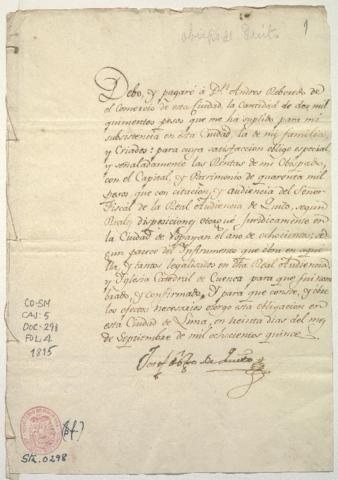 obispo de Quito
1
Debo, y pagaré á Dn. Andres Rebredo de
el Comercio de esta Ciudad, la Cantidad de dos mil
quinientos pesos que me ha suplido para mi
subsistencia en esta Ciudad, la de mi familia,
y Criados: para cuya satisfaccion obligo especial
y señaladamente las Rentas de mi Obispado,
con el Capital, y Patrimonio de quarenta mil
pesos que con citacion, y Audiencia del Señor
Fiscal de la Real Audiencia de Quito, segun
Reales disposiciones otorgué juridicamente en
la Ciudad de Popayan el año de ochocientos: se
gun parece del Instrumento que obra en aque
lla, y tantos legalizados en dha Real Audiencia,
y Iglesia Catedral de Cuenca para que fui nom
brado, y confirmado. Y para que conste, y obre
los efectos necesarios otorgo esta obligacion en
esta Ciudad de Lima, en treinta dias del mes
de Septiembre de mil ochocientos quince.
Josef Obpo de Quito
CO-SM
CAJ: 5
DOC: 298
FOL: 1
1815
(3f.)
Sta. 0298